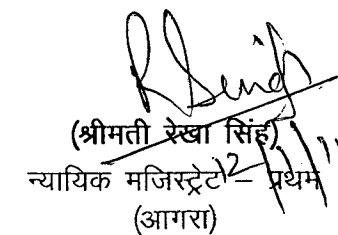 R Singh
(श्रीमती रेखा सिंह)
न्यायिक मजिस्ट्रेट – प्रथम
(आगरा)